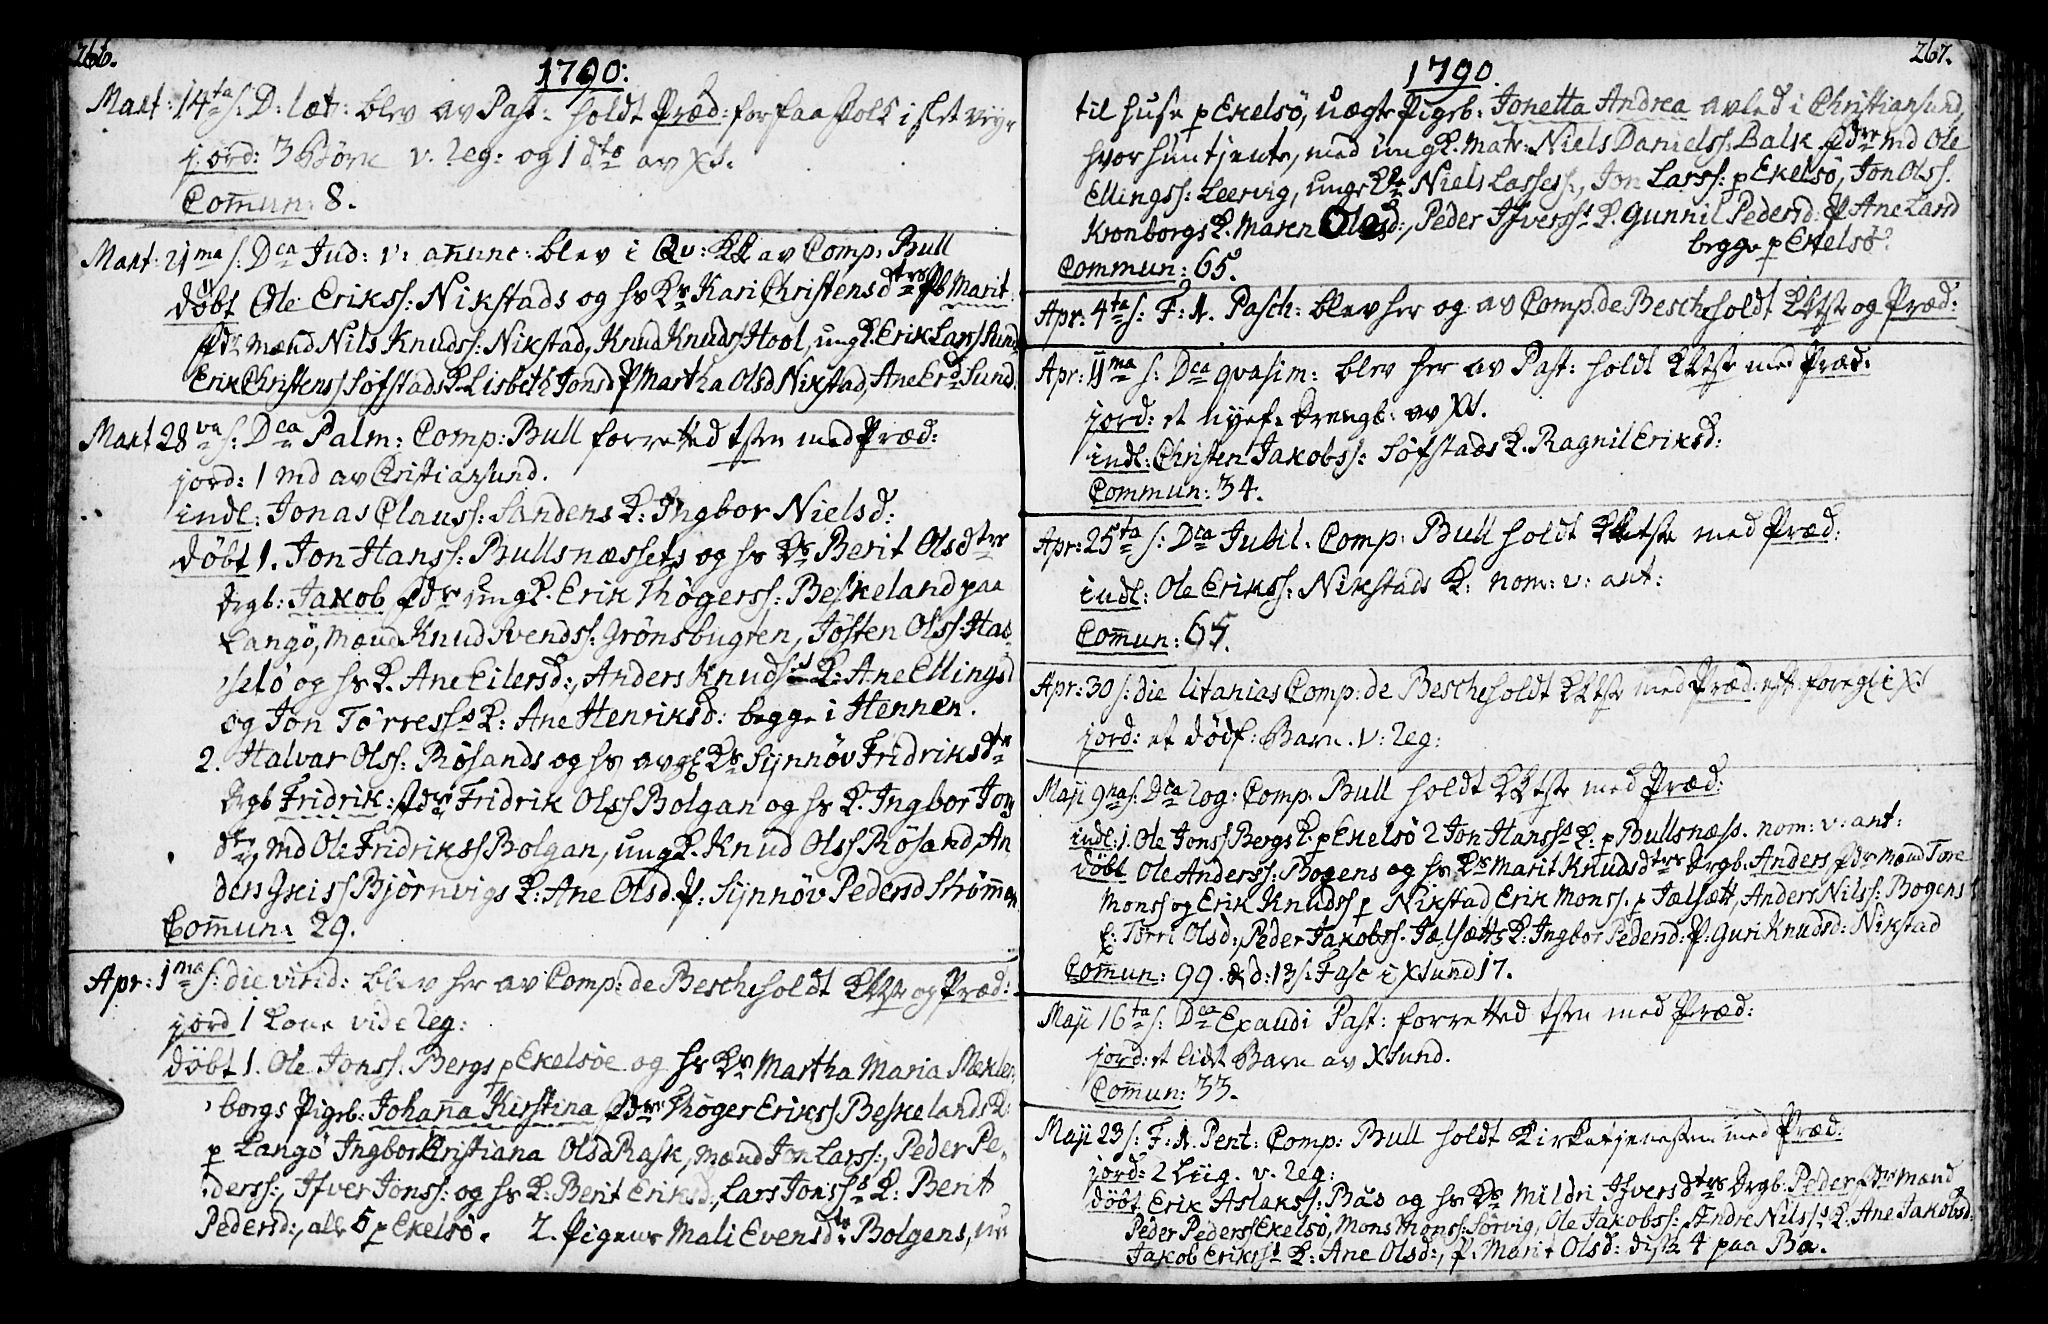 266.
1790:
Mart: 14ta s: D: læt: blev av Past: holdt Præd: for faa Folk i slet veyr
jord: 3 Börn v. leg: og 1 dto av XS.
Com̄un: 8.
Mart: 21ma s: Dca Jud: v: anunc: blev i Qv: KK av Comp: Bull
döbt Ole Erikss: Nikstads og hs Ks Kari Christensdtrs Pb Marit
fdr mænd Nils Knudss: Nikstad, Knud Knudss Hool, ungK. Erik Larss Sund,
Erik Christenss Söfstads K. Lisbeth Jonsd P Martha Olsd Nikstad, Ane Erd Sund.
Mart 28va s: Dca Palm: Comp: Bull forretted tsten med Præd:
jord: 1 md av Cristiansund.
indl: Jonas Clauss: Sandens K: Ingbor Nielsd:
döbt 1. Jon Hanss: Bullsnæssets og hs Ks Berit Olsdtrs
Drgb: Jakob fdr ungK. Erik Thögerss: Beskeland paa
Langö, mænd Knud Svendss: Grönsbugten, Jösten Olss: Has
selö og hs K. Ane Eilersd:, Anders Knudss K: Ane Ellingsd
og Jon Törress K: Ane Henriksd: begge i Hennen.
2. Halvar Olss: Rösands og hs avg Ks Synnöv Fridriksdtr
Drgb Fridrik: fdr Fridrik Olss Bolgan og hs K. Ingbor Jons
dtr, md Ole Fridrikss Bolgan, ungK. Knud Olss Rösand, An
ders Greiss Björnvigs K: Ane Olsd. P. Synnöv Pedersd Ström̄en
Com̄un: 29.
Apr: 1ma s: die virid: blev her av Comp: de Besche holdt KKtste og Præd:
jord 1 Kone vide leg:
döbt 1. Ole Jonss. Bergs p Ekelsöe og hs Ks Martha Maria Meklen
borgs Pigeb: Johan̄a Kirstina fdr Thöger Erikss Beskelands K:
p Langö Ingbor Kristiana Olsd Rask, mænd Jon Larss:, Peder Pe
derss:, Ifver Jonss: og hs K: Berit Eriksd:, Lars Jonss K: Berit
Pedersd:, alle 5 p Ekelsö. 2. Pigens Mali Evensdtrs Bolgens, nu
267.
1790.
til huse p Ekelsö, uægte Pigeb: Jonetta Andrea avled i Christiansund,
hvor hun tjente, med ungK. Matr: Niels Danielss: Balk fdre md Ole
Ellingss: Leervig, ungeKr Niels Lassess:, Jon Larss: p Ekelsö, Jon Olss.
Kronborgs K. Maren Olesd:, Peder Ifverss K. Gunnil Pedersd: P Ane Land
begge p Ekelsö
Commun: 65.
Apr: 4ta s: F: 1. Pasch: blev her og av Comp. de Besche holdt KKtste og Præd:
Apr: 11ma s: Dca qvasim: blev her av Past: holdt KKtste med Præd:
jord: et nyef. Drengb: av XS.
indl: Christen Jakobss: Söfstads K. Ragnil Eriksd:
Commun: 34.
Apr: 25ta s: Dca Jubil. Comp: Bull holdt KKtste med Præd:
indl: Ole Erikss: Nikstads K: nom: v: ant:
Com̄un: 65.
Apr: 30 s: die litanias Comp: de Besche holdt KKtste med Præd:
jord: et dödf: Barn. v: leg:
Maji 9na s: Dca rog: Comp: Bull holdt KKtste med Præd:
indl: 1. Ole Jonss Bergs K. p Ekelsö 2 Jon Hanss K: p Bullsnæss. nom: v: ant:
döbt Ole Anderss: Bogens og hs Ks Marit Knudsdtrs Drgb. Anders fdr mænd Tore
Monss og Erik Knudss p Nikstad Erik Monss. p Jælsætt, Anders Nilss: Bogens
K: Törri Olsd:, Peder Jakobss. Jælsætts K: Ingbor Pedersd: P: Guri Knudsd: Nikstad
Com̄un: 99. & d: 13 s: Fasc i Xsund 17.
Maji 16ta s: Dca Exaudi Past: forretted tsten med Præd:
jord: et lidet Barn av Xsund.
Com̄un: 33.
Maji 23 s: F: 1. Pent: Comp: Bull holdt Kirketjenesten med Præd:
jord: 2 Liig. v. leg:
döbt Erik Aslakss: Baös og hs Ks Mildri Ifversdtrs Drgb: Peder fdr mænd
Peder Pederss Ekelsö, Mons Monss: Sörvig, Ole Jakobss:, Andre Nilss K. Ane Jakobsd:
Jakob Erikss K: Ane Olsd:, P. Marit Olsd: disse 4 paa Ba.